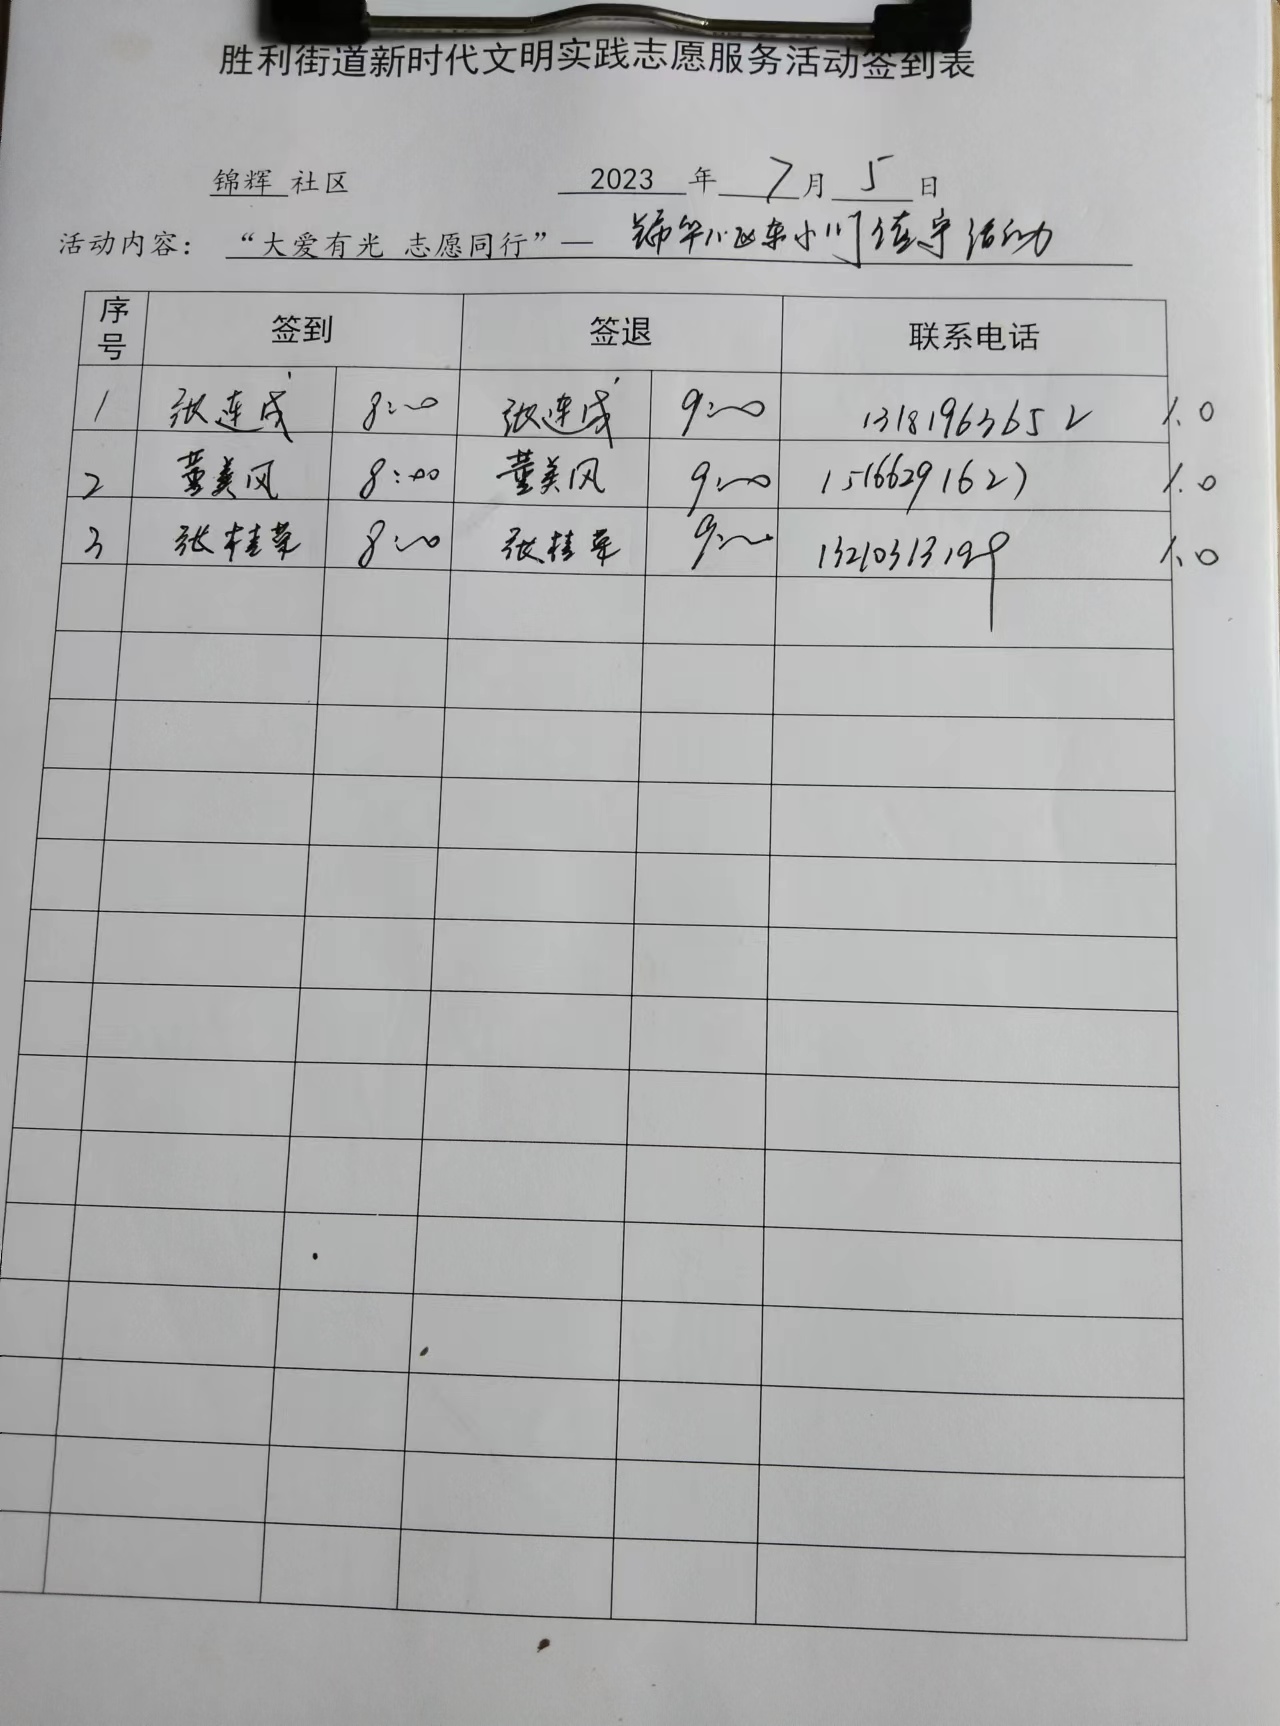 胜利街道新时代文明实践志愿服务活动签到表
锦辉 社区 2023 年 7 月 5 日
活动内容：“大爱有光 志愿同行”— 锦华小区东小门值守活动
序号 签到 签退 联系电话
1 张连成 8:00 张连成 9:00 13181963652 1.0
2 董美风 8:00 董美风 9:00 15166291627 1.0
3 张桂荣 8:00 张桂荣 9:00 13210313199 1.0